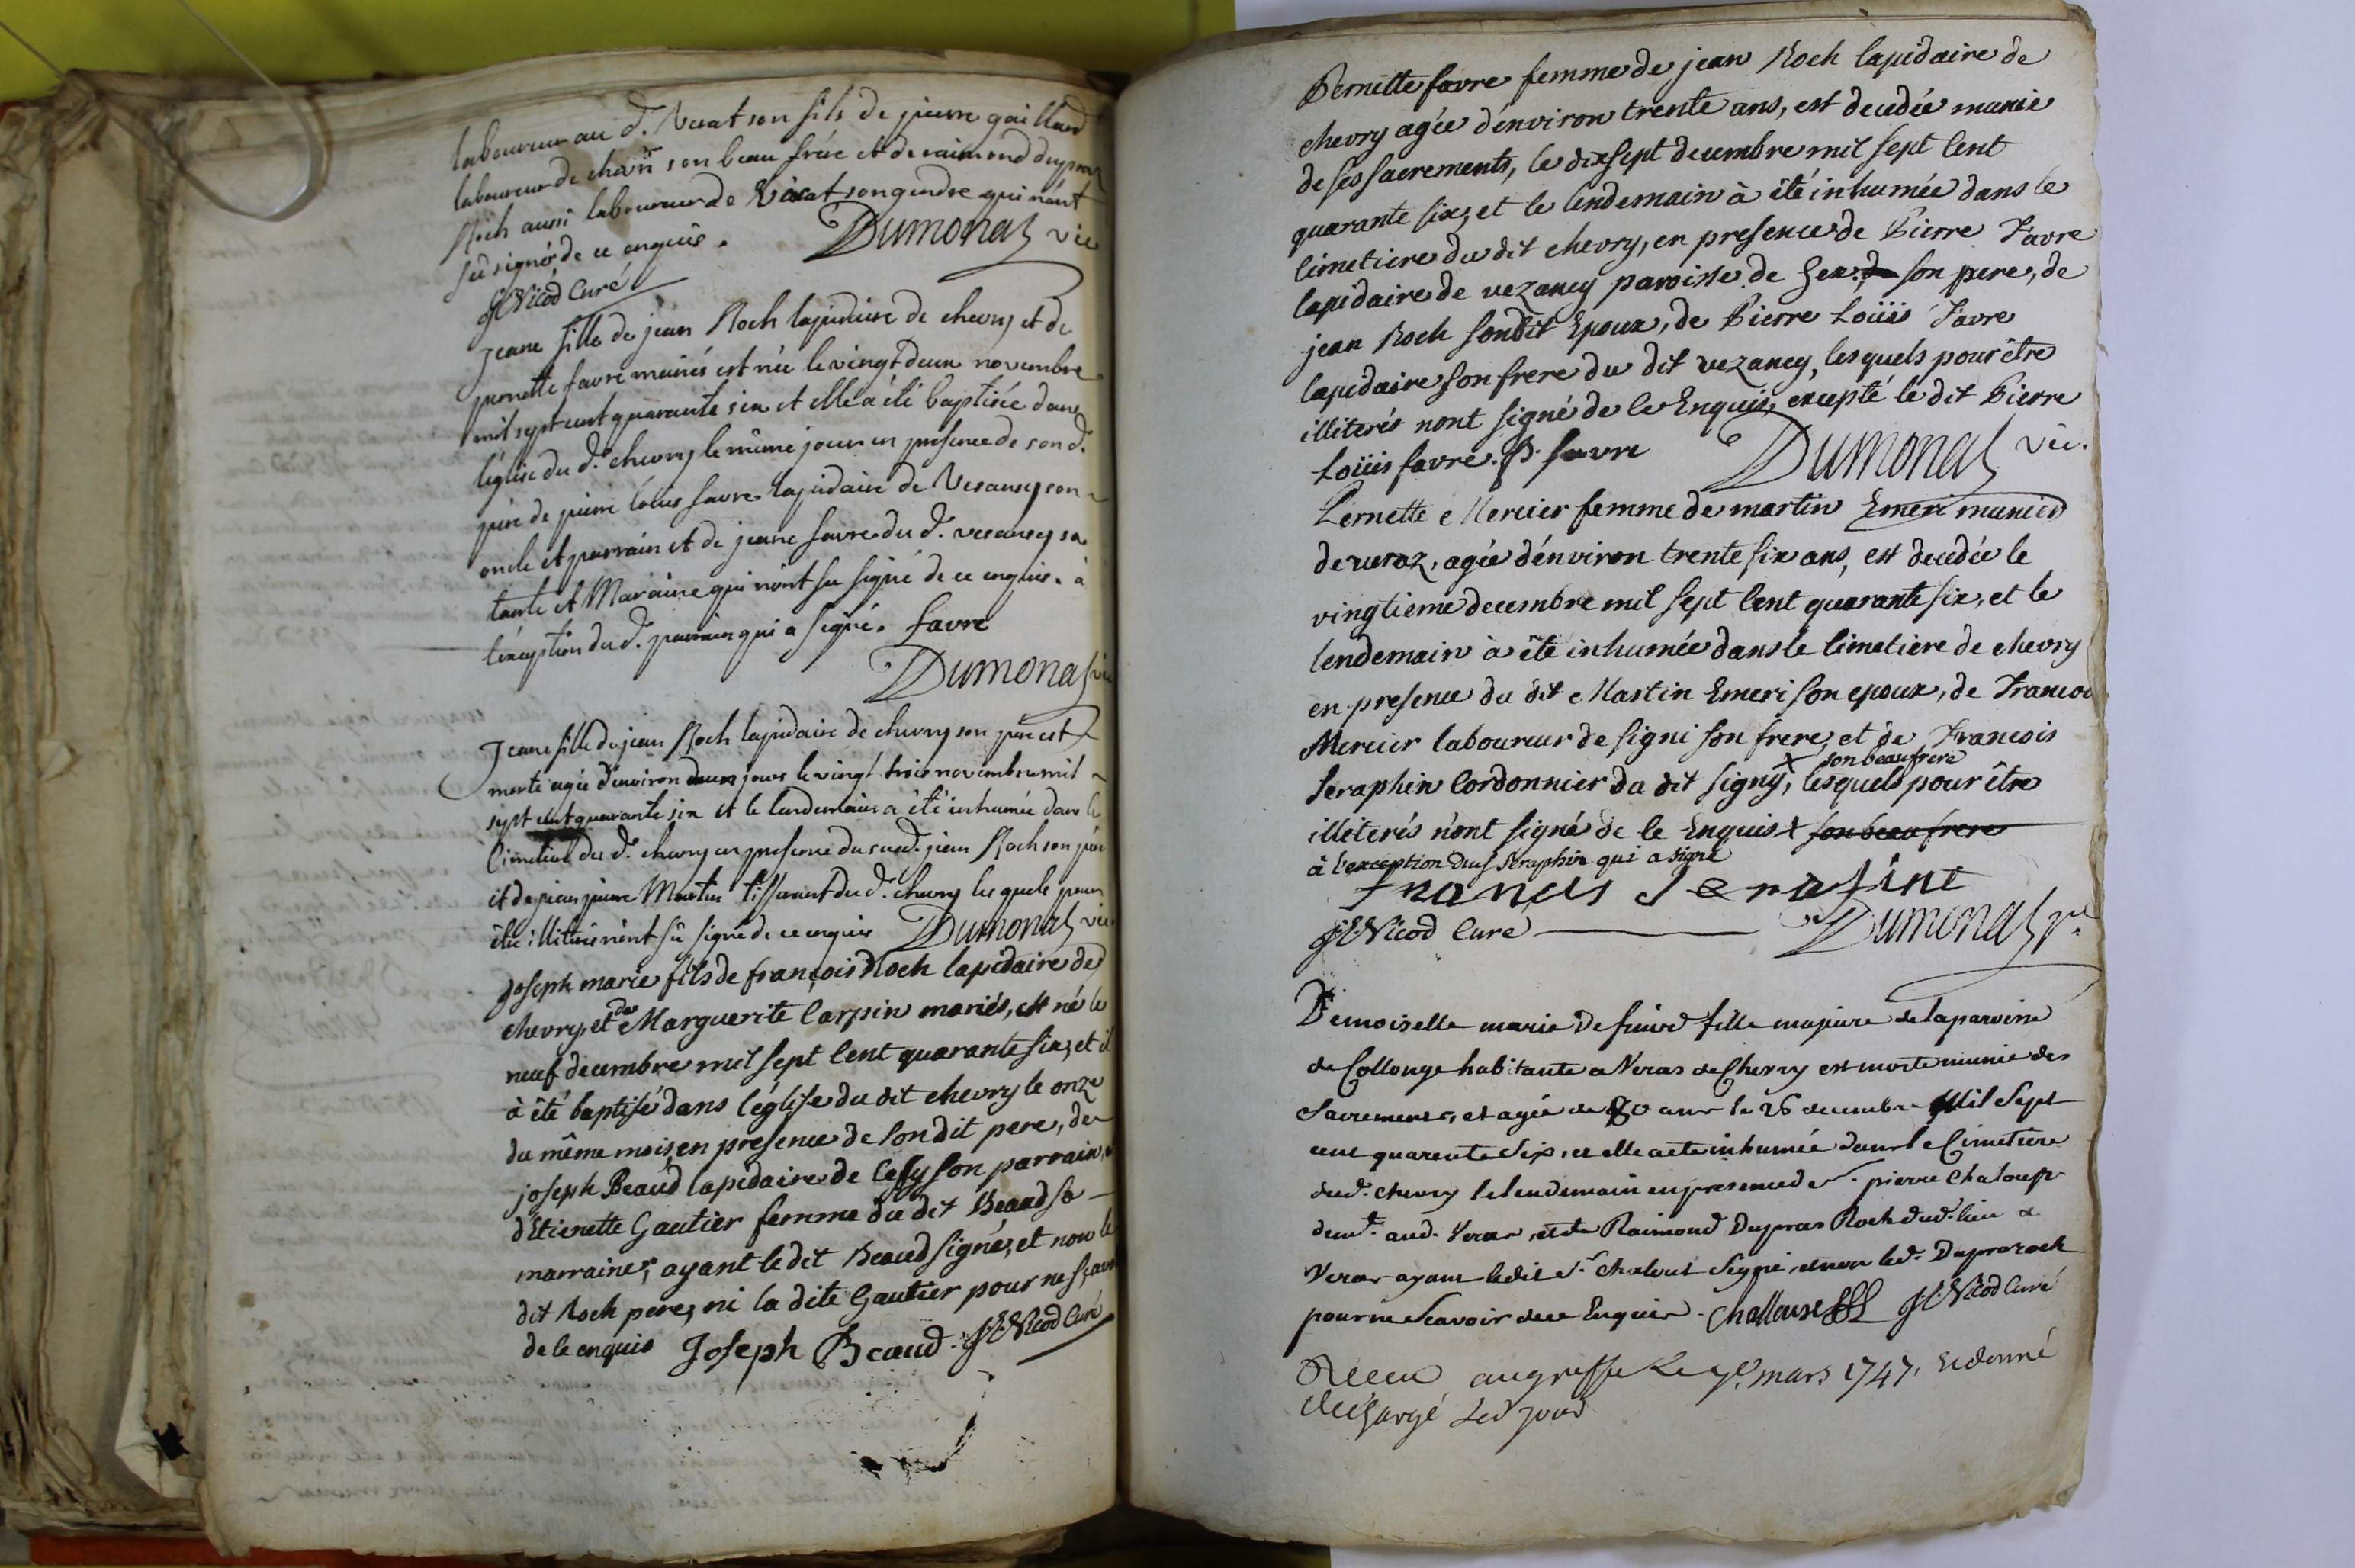 laboureur au d. Verat son fils de pierre gaillard
laboureur de chevri son beau frére et de raimond dupraz
Roch aussi laboureur de Verat son gendre qui n'ont
sû signé de ce enquis. Dumonal vic
JC Nicod Curé
Jeane fille de jean Roch lapidaire de chevry et de
pernette favre mariés est née le vingt deux novembre
mil sept cent quarante six et elle a été baptisée dans
l'église du d. chevry le même jour en presence de son d.
pére de pierre loüis favre lapidaire de Vesancy son
oncle et parrain et de jeane favre du d. vesancy sa
tante et Maraine qui n'ont su signé de ce enquis. à
l'exception du d. parrain qui a signé. favre
Dumonal vic
Jeane fille de jean Roch lapidaire de chevry son pére est
morte agée d'environ deux jours le vingt trois novembre mil
sept cent quarante six et le landemain a été inhumée dans le
Cimetiere du d. chevry en presence du sud. jean Roch son pére
et de jean pierre Martin tisserant du d. chevry les quels pour
être illiterés n'ont sû signé de ce enquis Dumonal vic.
Joseph marie fils de françois Roch lapidaire de
chevry, et de Marguerite Carpin mariés, est né le
neuf decembre mil sept Cent quarante six, et il
à été baptisé dans l'église du dit chevry le onze
du même mois, en presence de son dit pere, de
joseph Beaud lapidaire de Cessy son parrain,
d'Etienette Gautier femme du dit Beaud sa
marraine, ayant le dit Beaud signé, et non le
dit Roch pere, ni la dite Gautier pour ne sçavoir
de ce enquis Joseph Beaud. JC Nicod Curé
Pernette favre femme de jean Roch lapidaire de
chevry agée d'environ trente ans, est decedée munie
de ses sacrements, le dix sept decembre mil sept Cent
quarante six, et le lendemain à été inhumée dans le
Cimetiere du dit chevry, en presence de Pierre Favre
lapidaire de vezancy paroisse de Gex son pere, de
jean Roch son dit Epoux, de Pierre Loüis Favre
lapidaire son frere du dit vezancy, lesquels pour être
illiterés nont signé de Ce Enquis, excepté le dit Pierre
Loüis favre. P. favre Dumonal vic.
Pernette Mercier femme de martin Emeri munier
de veraz, agée d'environ trente six ans, est decedée le
vingtieme decembre mil sept Cent quarante six, et le
lendemain à été inhumée dans le Cimetiere de chevry
en presence du dit Martin Emeri son epoux, de Francois
Mercier laboureur de signi son frere, et de Francois
x son beaufrere
Seraphin Cordonnier du dit signy, lesquels pour être
illiterés n'ont signé de Ce Enquis x son beau frere
à l'exception dud. Seraphin qui a signé
francus Serafine
JC Nicod Curé Dumonal vic
Demoiselle marie fille majeure de la paroisse
de Collonge habitante a Veras de Chevry est morte munie des
Sacremens, et agée de 80 ans le 26 decembre Mil Sept
cent quarente Six, et elle a ete inhumée dans le Cimetiere
dud. Chevry le lendemain en presence de Sr. pierre Chaloup
demt. aud. Veras, et de Raimond Dupras Roch dud. lieu de
Veras ayant ledit Sr. Signé, et non led. Dupraroch
pour ne Scavoir de ce Enquis. JC Nicod Curé
Receu au greffe le mars 1747. et donné
décharge led jour